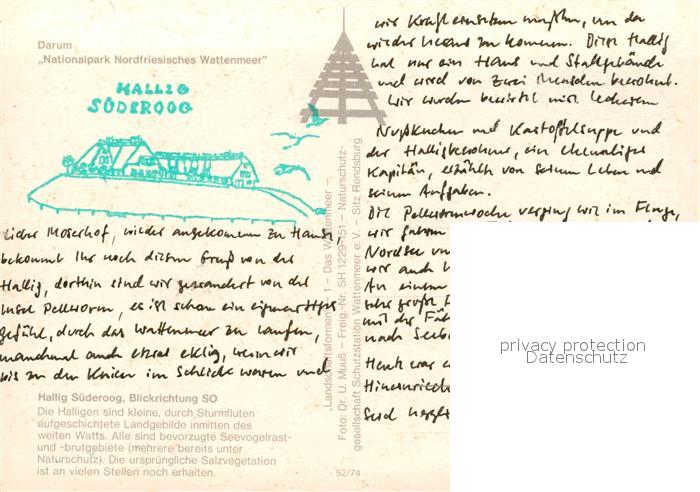 Darum
„Nationalpark Nordfriesisches Wattenmeer"
HALLIG
SÜDEROOG
Lieber Moserhof, wieder angekommen zu Hause,
bekommt Ihr noch diesen Gruß von der
Hallig, dorthin sind wir gewandert von der
Insel Pellworm, es ist schon ein eigenartiges
Gefühl, durch das Wattenmeer zu laufen,
manchmal auch etwas eklig, wenn wir
bis zu den Knien im Schlick waren und
wir Kraft einsetzen mußten, um da
wieder heraus zu kommen. Diese Hallig
hat nur ein Haus und Stallgebäude
und wird von zwei Menschen bewohnt.
Wir wurden bewirtet mit leckerem
Nußkuchen und Kartoffelsuppe und
der Halligbewohner, ein ehemaliger
Kapitän, erzählte von seinem Leben und
seinen Aufgaben.
Die Pellwormwoche verging wie im Fluge,
wir
Nordsee
wir auch
An einem
sehr große
mit der
nach
Heute war
Seid
Hallig Süderoog, Blickrichtung SO
Die Halligen sind kleine, durch Sturmfluten
aufgeschichtete Landgebilde inmitten des
weiten Watts. Alle sind bevorzugte Seevogelrast-
und -brutgebiete (mehrere bereits unter
Naturschutz). Die ursprüngliche Salzvegetation
ist an vielen Stellen noch erhalten.
52/74
„Landschaftsformen 1 – Das Wattenmeer –,
Foto: Dr. U. Muuß – Freig.-Nr. SH 1229/151 – Naturschutz-
gesellschaft Schutzstation Wattenmeer e.V. – Sitz Rendsburg
privacy protection
Datenschutz